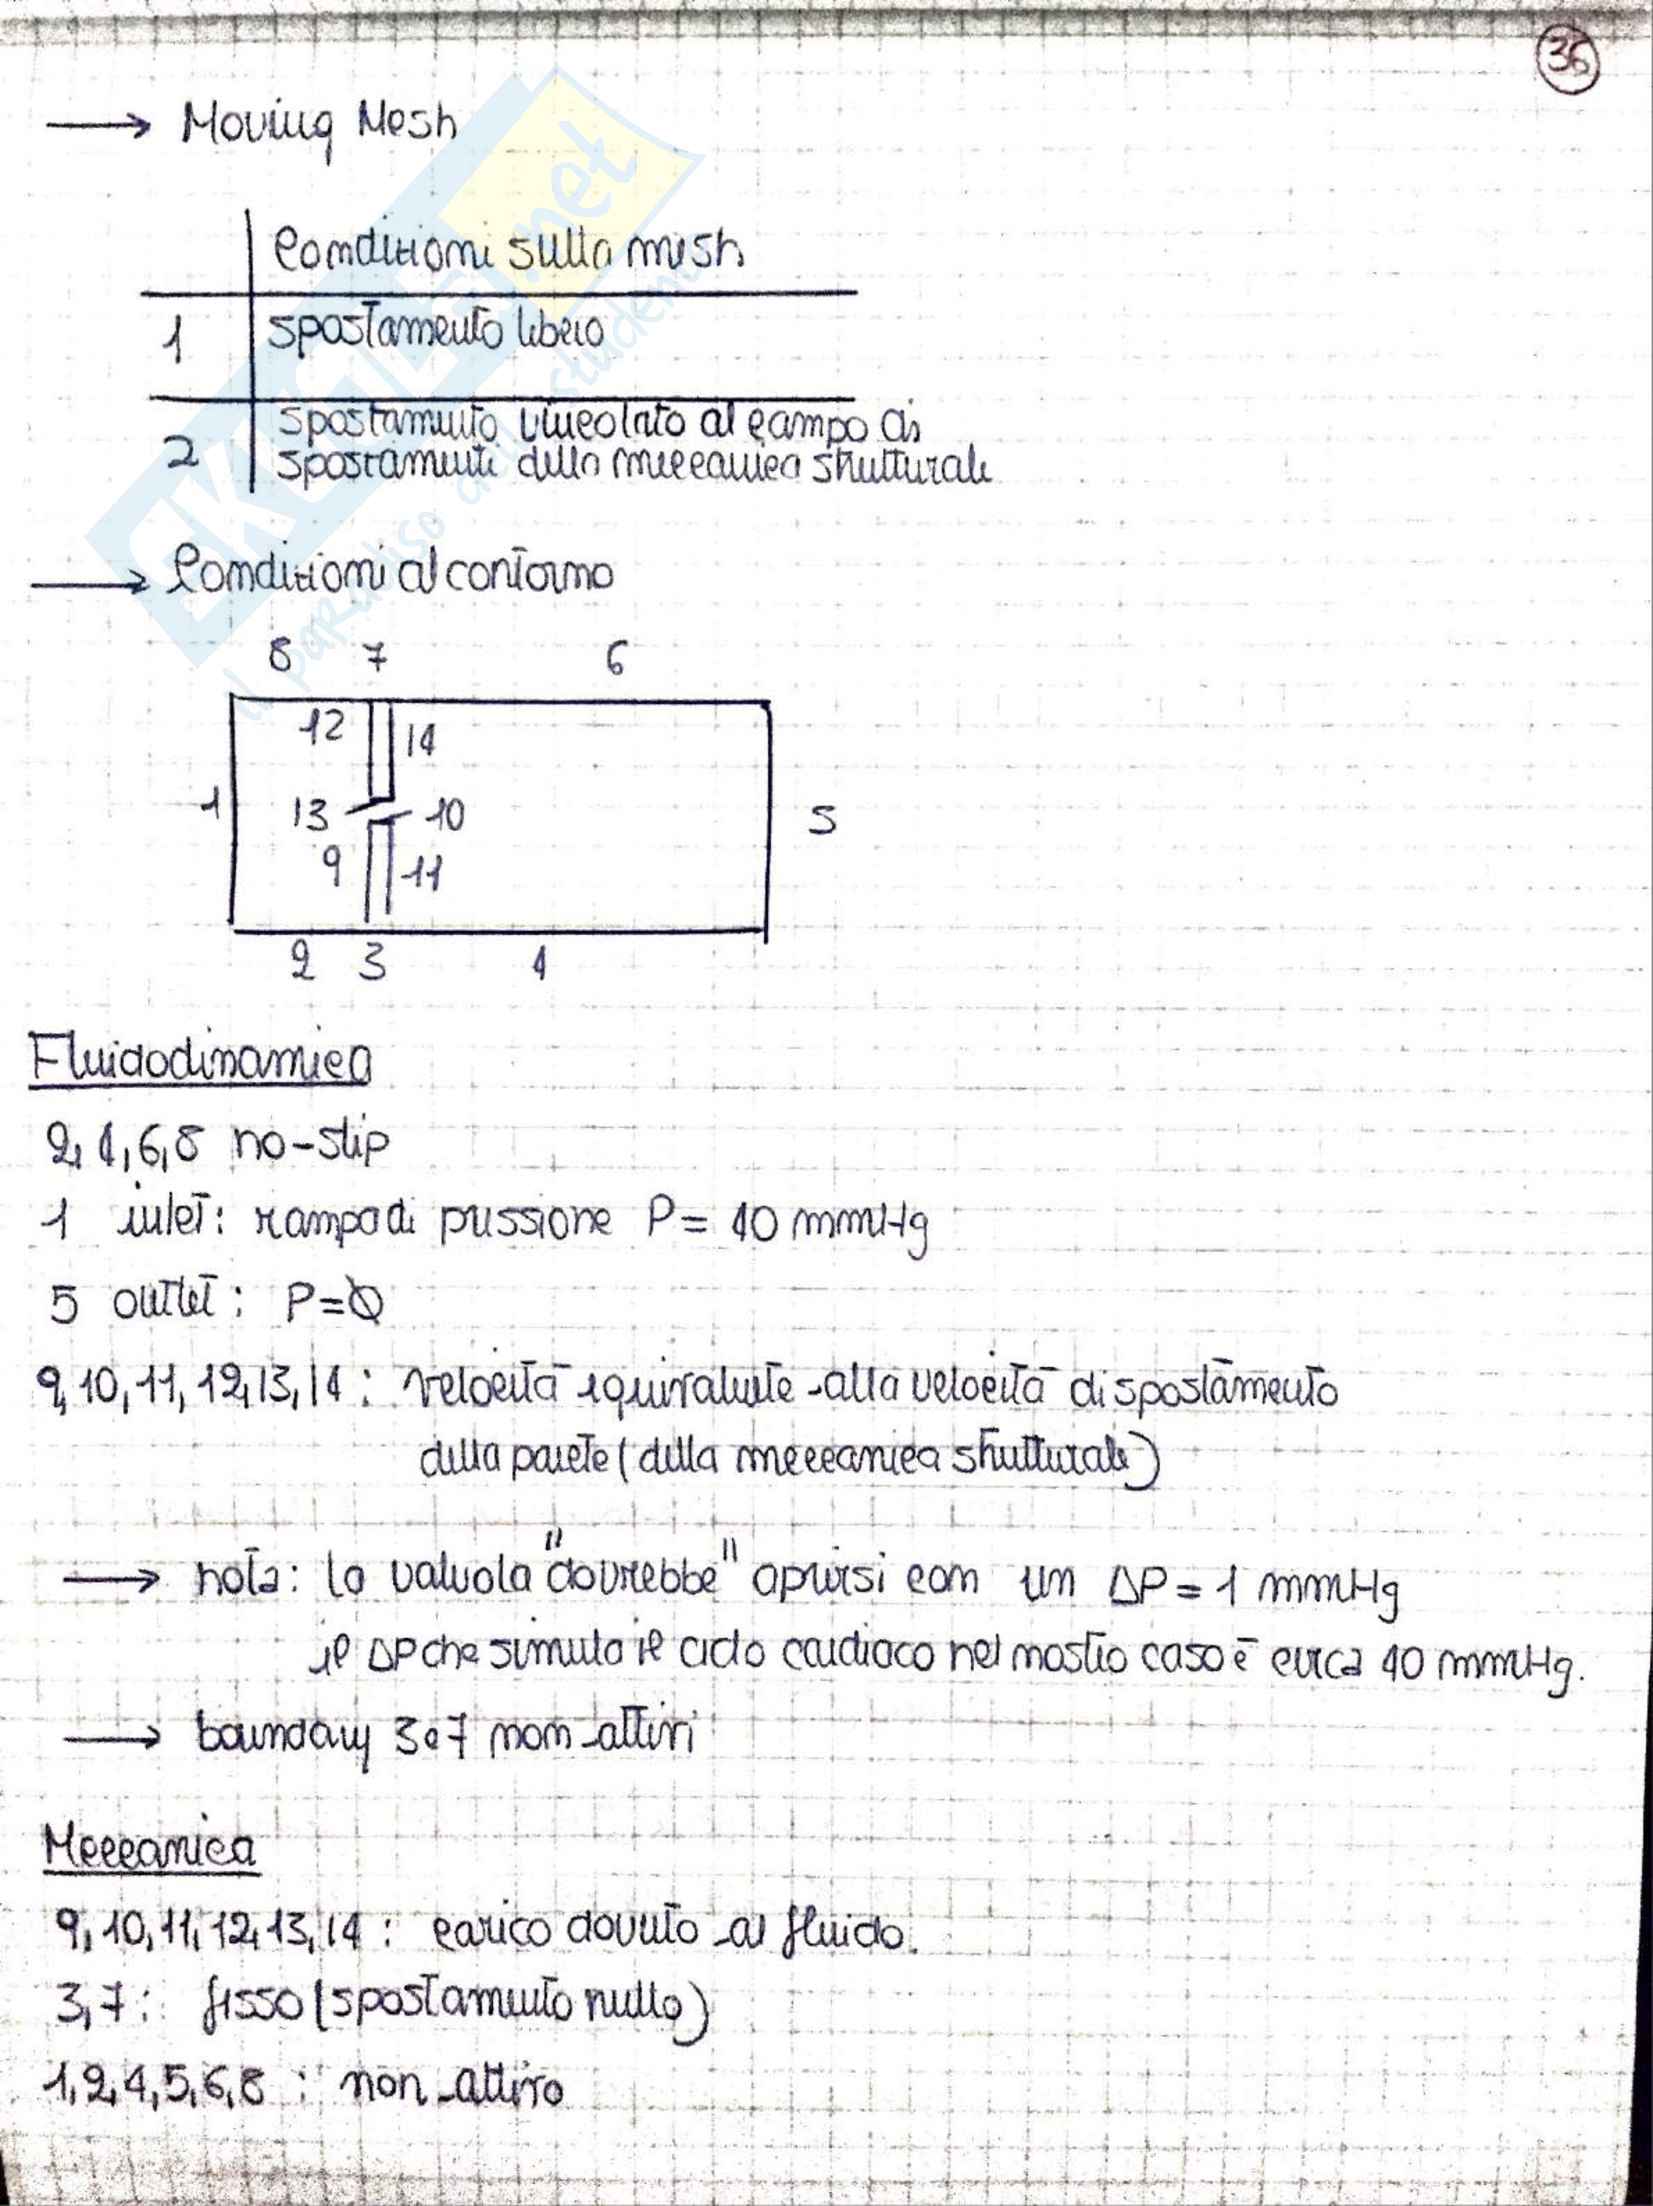 36
→ Moving Mesh
Condizioni sulla mesh
1 spostamento libero
2 spostamento vincolato al campo di
spostamenti della meccanica strutturale
→ Condizioni al contorno
8 7 6
12 14
1 13 10 5
9 11
2 3 4
Fluidodinamica
2, 4, 6, 8 no-slip
1 inlet: rampa di pressione P = 40 mmHg
5 outlet: P=Ø
9, 10, 11, 12, 13, 14: velocità equivalente alla velocità di spostamento
della parete (della meccanica strutturale)
→ nota: la valvola "dovrebbe" aprirsi con un ΔP = 1 mmHg
il ΔP che simula il ciclo cardiaco nel nostro caso è circa 40 mmHg.
→ boundary 3 e 7 non attivi
Meccanica
9, 10, 11, 12, 13, 14: carico dovuto al fluido.
3, 7: fisso (spostamento nullo)
1, 2, 4, 5, 6, 8: non attivo